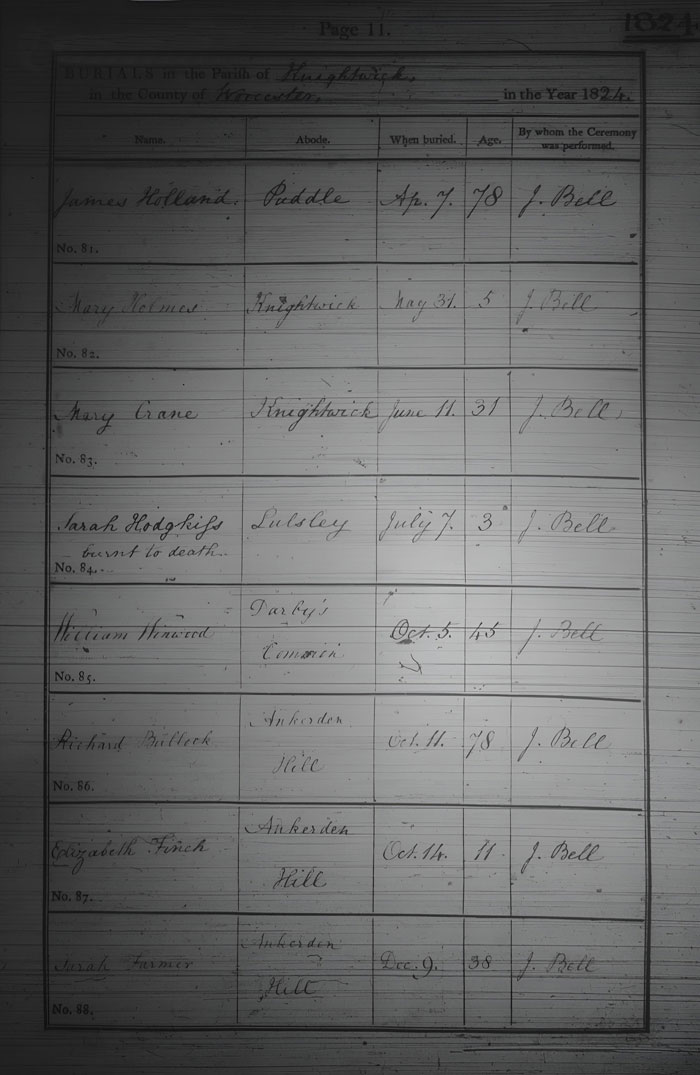 Page 11.
1824
BURIALS in the Parish of Knightwick,
in the County of Worcester, in the Year 1824.
Name. Abode. When buried. Age. By whom the Ceremony was performed.
James Holland. Puddle Ap. 7. 78 J. Bell
No. 81.
Mary Holmes Knightwick May 31. 5 J. Bell
No. 82.
Mary Crane Knightwick June 11. 31 J. Bell
No. 83.
Sarah Hodgkiſs Lulsley July 7. 3 J. Bell
burnt to death
No. 84.
William Winwood Darby's Common Oct. 5. 45 J. Bell
No. 85.
Richard Bullock Ankerden Hill Oct. 11. 78 J. Bell
No. 86.
Elizabeth Finch Ankerden Hill Oct. 14. 11 J. Bell
No. 87.
Sarah Farmer Ankerden Hill Dec. 9. 38 J. Bell
No. 88.